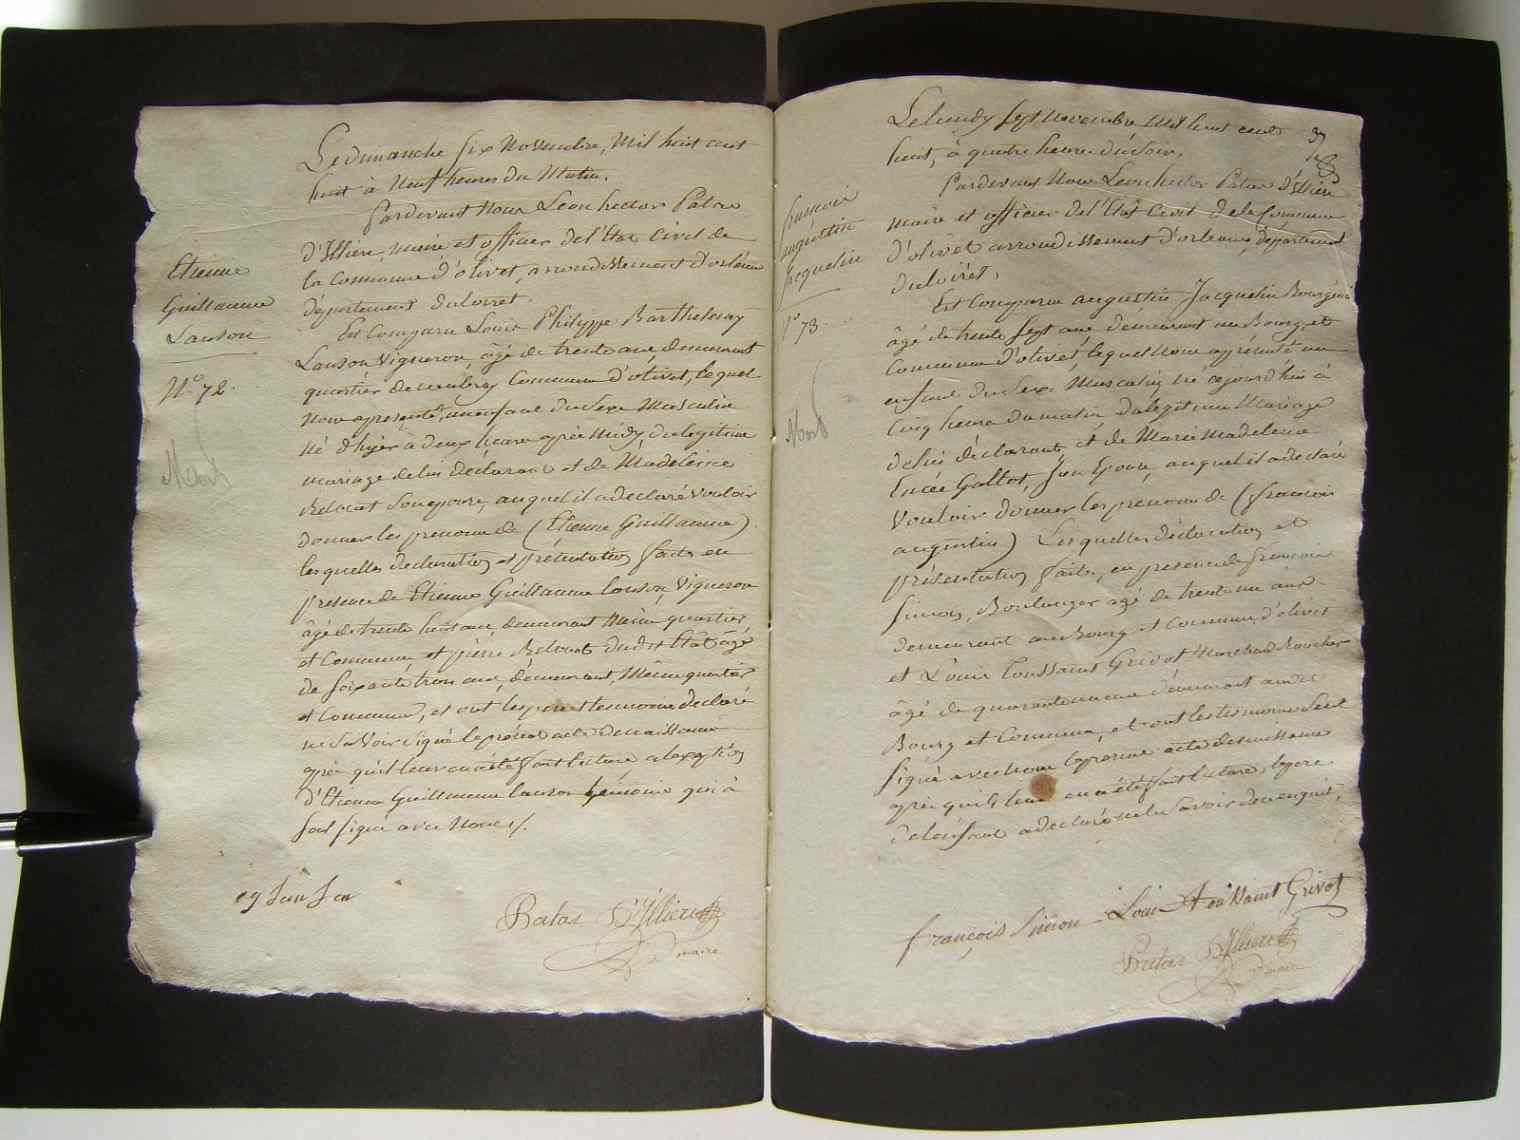 Le dimanche six Novembre, Mil huit cent
huit à Neuf heures du Matin.
Pardevant Nous Léon hector Patas
D'Illiers, maire et officier de l'Etat Civil de
la Commune d'olivet, arrondissement d'orléans
département du Loiret.
Est Comparu Louis Philippe Barthelemy
Lanson Vigneron, âgé de trente ans demeurant
quartier de Commune d'olivet, lequel
Nous a présenté, un enfant du Sexe Masculin
né d'hyer à deux heures après Midy, du légitime
mariage de lui déclarant et de Madeleine
Son épouse, auquel il a declaré vouloir
donner les prenoms de (Etienne Guillaume)
lesquelles declaration et présentation faite en
presence de Etienne Guillaume Lanson, Vigneron
âgé de trente huit ans, demeurant Même quartier
et Commune, et pierre dudit Etat âgé
de soixante trois ans, demeurant, Même quartier
et Commune, et ont les père et tesmoins declaré
ne Savoir Signé le présent acte de naissance
après qu'il leur en a été fait lecture a l'exception
d'Etienne Guillaume Lanson témoin qui à
Seul signé avec Nous ./.
Etienne
Guillaume
Lanson
N° 72.
Mort
eg Lanson
Patas D'Illiers
maire
Le lundy Sept Novembre Mil huit cent
huit, à quatre heures du Soir,
37
Pardevant Nous Léon hector Patas D'Illiers
maire et officier de l'Etat Civil de la Commune
d'olivet arrondissement d'orleans, departement
du loiret,
Est Comparu augustin Jacquelin Bourgeois
âgé de trente sept ans demeurant au Bourg et
Commune d'olivet lequel Nous a présenté un
enfant du Sexe Masculin né cejourd'hui à
Cinq heures du matin du légitime Mariage
de lui déclarant, et de Marie Madeleine
Gallot, Son Epouse, auquel il a declaré
Vouloir donner les prenoms de (françois
augustin) Lesquelles déclaration et
présentation faite, en presence de françois
Simon, Boulanger agé de trente un ans
demeurant au Bourg et Commune d'olivet
et Louis Toussaint Grivot Marchand Boucher
âgé de quarante un ans demeurant audit
Bourg et Commune, et ont les tesmoins Seul
signé avec Nous le present acte de naissance
après qu'il leur en a été fait lecture, le pere
de l'enfant a declaré ne le Savoir de ce enquit,
françois
augustin
Jacquelin
N° 73.
Mort
françois Simon Louis Toussaint Grivot
Patas D'Illiers
maire